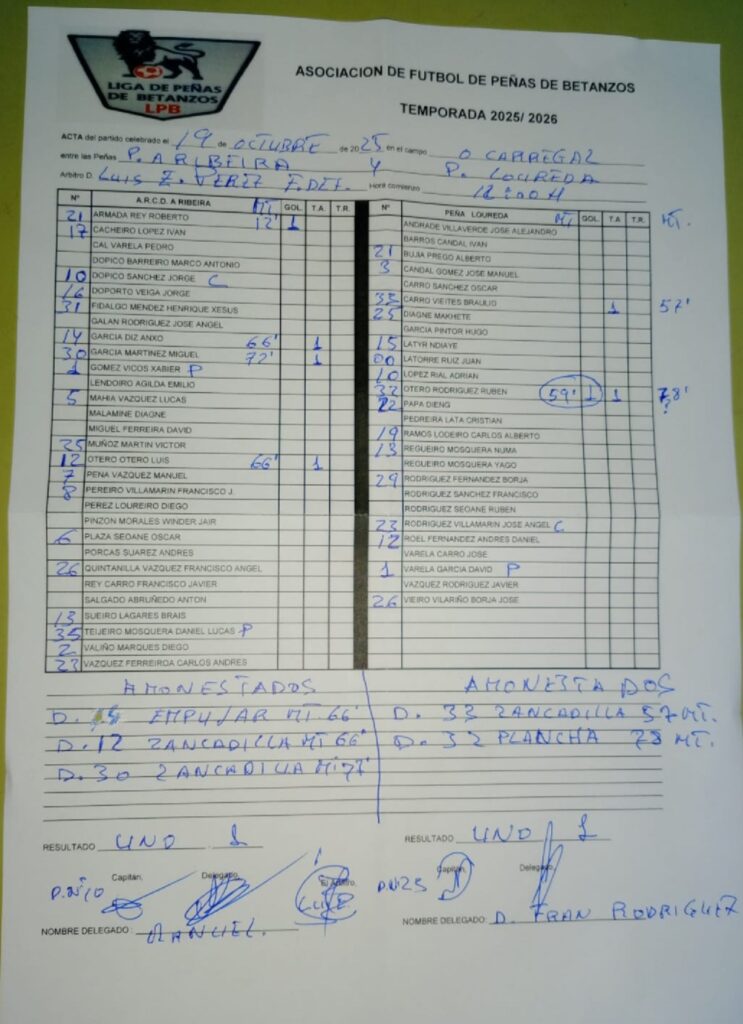 LIGA DE PEÑAS
DE BETANZOS
LPB
ASOCIACION DE FUTBOL DE PEÑAS DE BETANZOS
TEMPORADA 2025/ 2026
ACTA del partido celebrado el 19 de OCTUBRE de 2025 en el campo O CARREGAL
entre las Peñas P. A RIBEIRA Y P. LOUREDA
Arbitro D. LUIS Z. PEREZ Hora comienzo
Nº A.R.C.D. A RIBEIRA MT. GOL. T.A. T.R.
21 ARMADA REY ROBERTO 12' 1
17 CACHEIRO LOPEZ IVAN
CAL VARELA PEDRO
DOPICO BARREIRO MARCO ANTONIO
10 DOPICO SANCHEZ JORGE C
16 DOPORTO VEIGA JORGE
31 FIDALGO MENDEZ HENRIQUE XESUS
GALAN RODRIGUEZ JOSE ANGEL
14 GARCIA DIZ ANXO 66' 1
30 GARCIA MARTINEZ MIGUEL 72' 1
1 GOMEZ VICOS XABIER P
LENDOIRO AGILDA EMILIO
5 MAHIA VAZQUEZ LUCAS
MALAMINE DIAGNE
MIGUEL FERREIRA DAVID
25 MUÑOZ MARTIN VICTOR
12 OTERO OTERO LUIS 66' 1
7 PENA VAZQUEZ MANUEL
8 PEREIRO VILLAMARIN FRANCISCO J.
PEREZ LOUREIRO DIEGO
PINZON MORALES WINDER JAIR
6 PLAZA SEOANE OSCAR
PORCAS SUAREZ ANDRES
26 QUINTANILLA VAZQUEZ FRANCISCO ANGEL
REY CARRO FRANCISCO JAVIER
SALGADO ABRUÑEDO ANTON
13 SUEIRO LAGARES BRAIS
35 TEIJEIRO MOSQUERA DANIEL LUCAS P
2 VALIÑO MARQUES DIEGO
23 VAZQUEZ FERREIROA CARLOS ANDRES
Nº PEÑA LOUREDA MT GOL. T.A T.R. MT.
ANDRADE VILLAVERDE JOSE ALEJANDRO
BARROS CANDAL IVAN
21 BUJIA PREGO ALBERTO
3 CANDAL GOMEZ JOSE MANUEL
CARRO SANCHEZ OSCAR
33 CARRO VIEITES BRAULIO 1 57'
25 DIAGNE MAKHETE
GARCIA PINTOR HUGO
15 LATYR NDIAYE
00 LATORRE RUIZ JUAN
10 LOPEZ RIAL ADRIAN
32 OTERO RODRIGUEZ RUBEN 59' 1 1 78'
22 PAPA DIENG
PEDREIRA LATA CRISTIAN
19 RAMOS LODEIRO CARLOS ALBERTO
13 REGUEIRO MOSQUERA NUMA
REGUEIRO MOSQUERA YAGO
29 RODRIGUEZ FERNANDEZ BORJA
RODRIGUEZ SANCHEZ FRANCISCO
RODRIGUEZ SEOANE RUBEN
23 RODRIGUEZ VILLAMARIN JOSE ANGEL C
12 ROEL FERNANDEZ ANDRES DANIEL
VARELA CARRO JOSE
1 VARELA GARCIA DAVID P
VAZQUEZ RODRIGUEZ JAVIER
26 VIEIRO VILARIÑO BORJA JOSE
AMONESTADOS
D. EMPUJAR MT. 66'
D. 12 ZANCADILLA MT 66'
D. 30 ZANCADILLA MT
AMONESTADOS
D. 33 ZANCADILLA 57 MT.
D. 32 PLANCHA 78 MT.
RESULTADO UNO 1
RESULTADO UNO 1
Capitán, Delegado, El Arbitro,
D. Nº10 LUIS
Capitán, Delegado,
D. Nº23
NOMBRE DELEGADO: MANUEL.
NOMBRE DELEGADO: D. FRAN RODRIGUEZ